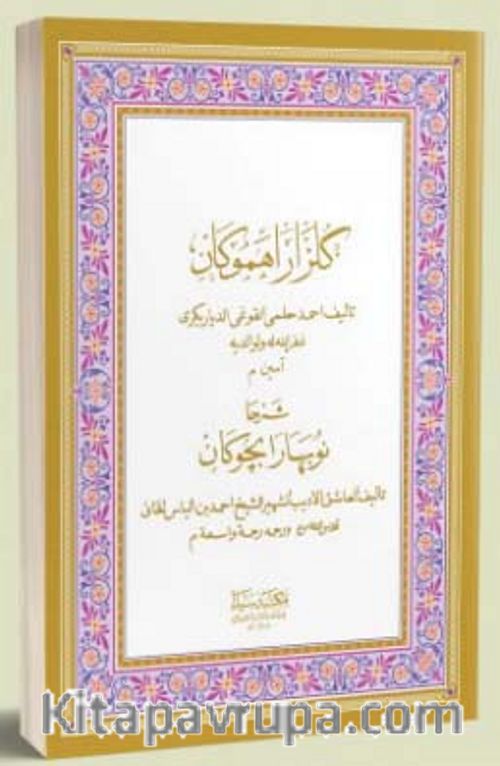 كلزارا هموكان
تأليف احمد حلمى القوغى الدياربكرى
غفر الله له ولوالديه
آمين م
شرحا
نوبهارا بچوكان
تأليف العاشق الاديب الشهير الشيخ احمد بن الياس الخانى
ورحمه رحمة واسعة م
Kitapavrupa.com